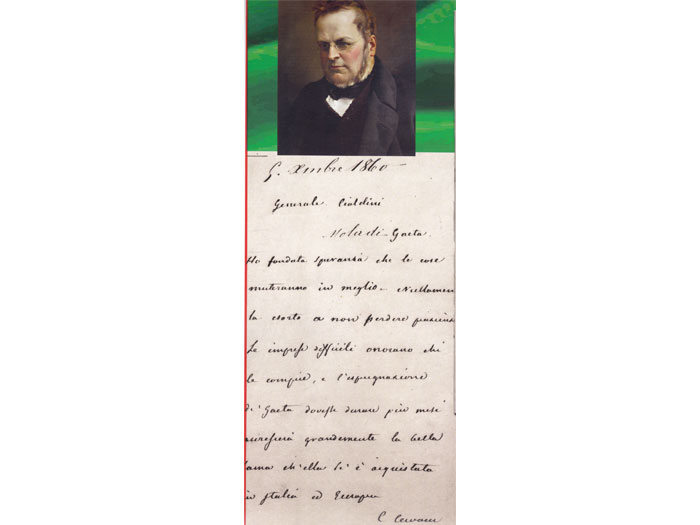 Xmbre 1860
Generale Cialdini
Mola di Gaeta.
Ho fondata speranza che le cose
muteranno in meglio - Nullamen
la esorto a non perdere pazienza
Le imprese difficili onorano chi
le compie, e l'espugnazione
di Gaeta dovesse durare più mesi
grandemente la bella
fama ch'ella si è acquistata
in Italia ed Europa
C Cavour